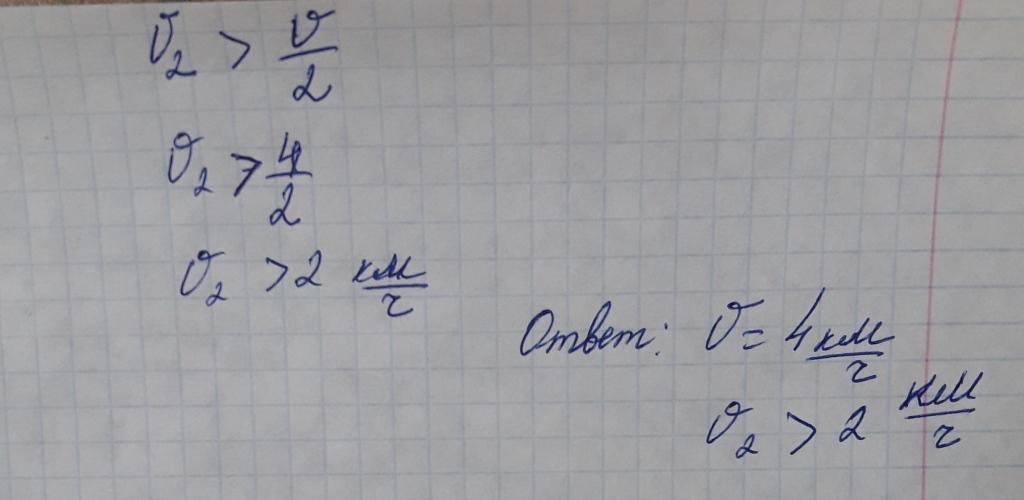 υ₂ > υ/2
υ₂ > 4/2
υ₂ > 2 км/ч
Ответ: υ = 4 км/ч
υ₂ > 2 км/ч